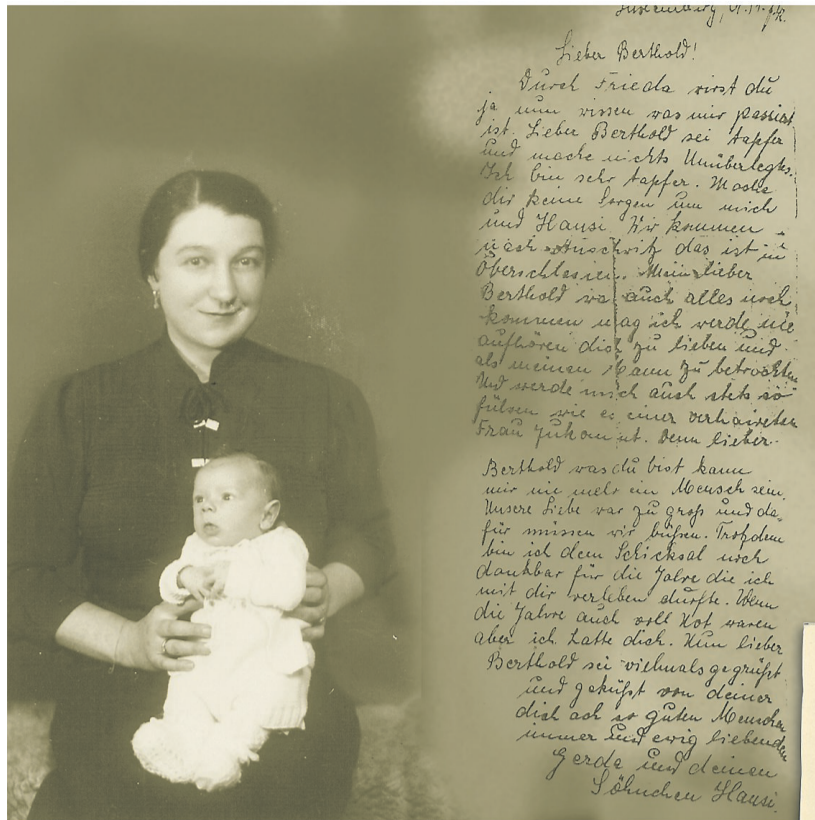 Luxemburg,
Lieber Berthold!
Durch Frieda wirst du
ja nun wissen was mir passiert
ist. Lieber Berthold sei tapfer
und mache nichts Unüberlegtes.
Ich bin sehr tapfer. Mache
dir keine Sorgen um mich
und Hansi. Wir kommen
nach Auschwitz das ist in
Oberschlesien. Mein lieber
Berthold was auch alles noch
kommen mag ich werde nie
aufhören dich zu lieben und
als meinen Mann zu betrachten
Und werde mich auch stets so
fühlen wie es einer verheirateten
Frau zukommt. Denn lieber
Berthold was du bist kann
mir nie mehr ein Mensch sein.
Unsere Liebe war zu groß und da-
für müssen wir büßen. Trotzdem
bin ich dem Schicksal noch
dankbar für die Jahre die ich
mit dir verleben durfte. Wenn
die Jahre auch voll Not waren
aber ich hatte dich. Nun lieber
Berthold sei vielmals gegrüßt
und geküßt von deiner
dich ach so guten Menschen
immer und ewig liebenden
Gerda und deinen
Söhnchen Hansi.